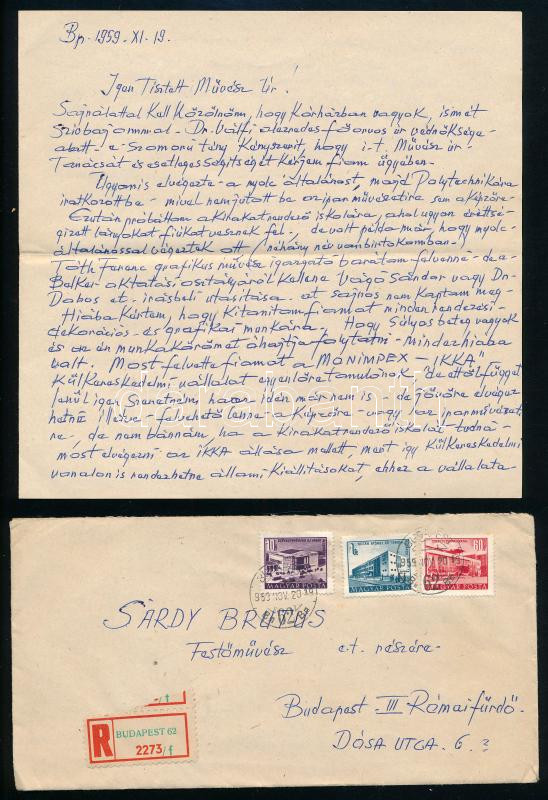 Bp. 1959. XI. 19.
Igen Tisztelt Művész Úr!
Sajnálattal kell közölnöm, hogy kórházban vagyok, ismét
szivbajommal. Dr. Válfi alezredes főorvos úr védnöksége
alatt - e szomorú tény kényszerit, hogy i.t. Művész úr
Tanácsát és esetleges segitségét kérjem fiam ügyében.
Ugyanis elvégezte a nyolc általánost, majd Polytechnikára
iratkozott be - mivel nem jutott be az iparművészetire sem a képzőre.
Ezután próbáltam a kirakatrendező iskolára, ahol ugyan érettsé-
gizett lányokat fiúkat vesznek fel, de volt példa már, hogy nyolc
általánossal végeztek ott / néhány név van birtokomban!/
Tóth Ferenc grafikus művész igazgató barátom felvenné - de a
Belker. oktatási osztályáról kellene Vágó Sándor vagy Dr.
Dobos et. irásbeli utasitása. et sajnos nem kaptam meg -
Hiába kértem, hogy kitanitom fiamat minden rendezési-
dekorációs - és grafikai munkára, Hogy súlyos beteg vagyok
és az én munkakörömet óhajtja folytatni - Mindez hiába
volt. Most felvette fiamat a "MONIMPEX - IKKA"
Külkereskedelmi vállalat egyenlőre tanulónak de ettől függet
lenül igen szeretném, ha az idén már nem is - de jövőre elvégez
hetné illetve - felvehető lenne a képzőre - vagy iparművészeti
re, de nem bánnám, ha a kirakatrendező iskolát tudná
most elvégezni az IKKA állása mellett, mert igy külkereskedelmi
vonalon is rendezhetne állami kiállitásokat, ehhez a vállalata
10f
MAGYAR POSTA
1Ft
MAGYAR POSTA
60f
MAGYAR POSTA
62
SÁRDY BRUTUS
Festőművész e.t. részére -
Budapest III Rómaifürdő.
DÓSA UTCA. 6. sz
R
BUDAPEST 62
2273/f